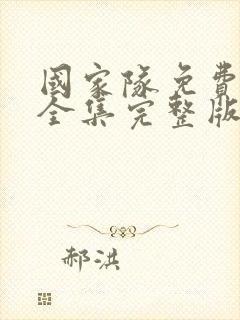 國家隊免費
全集完整版
郝洪